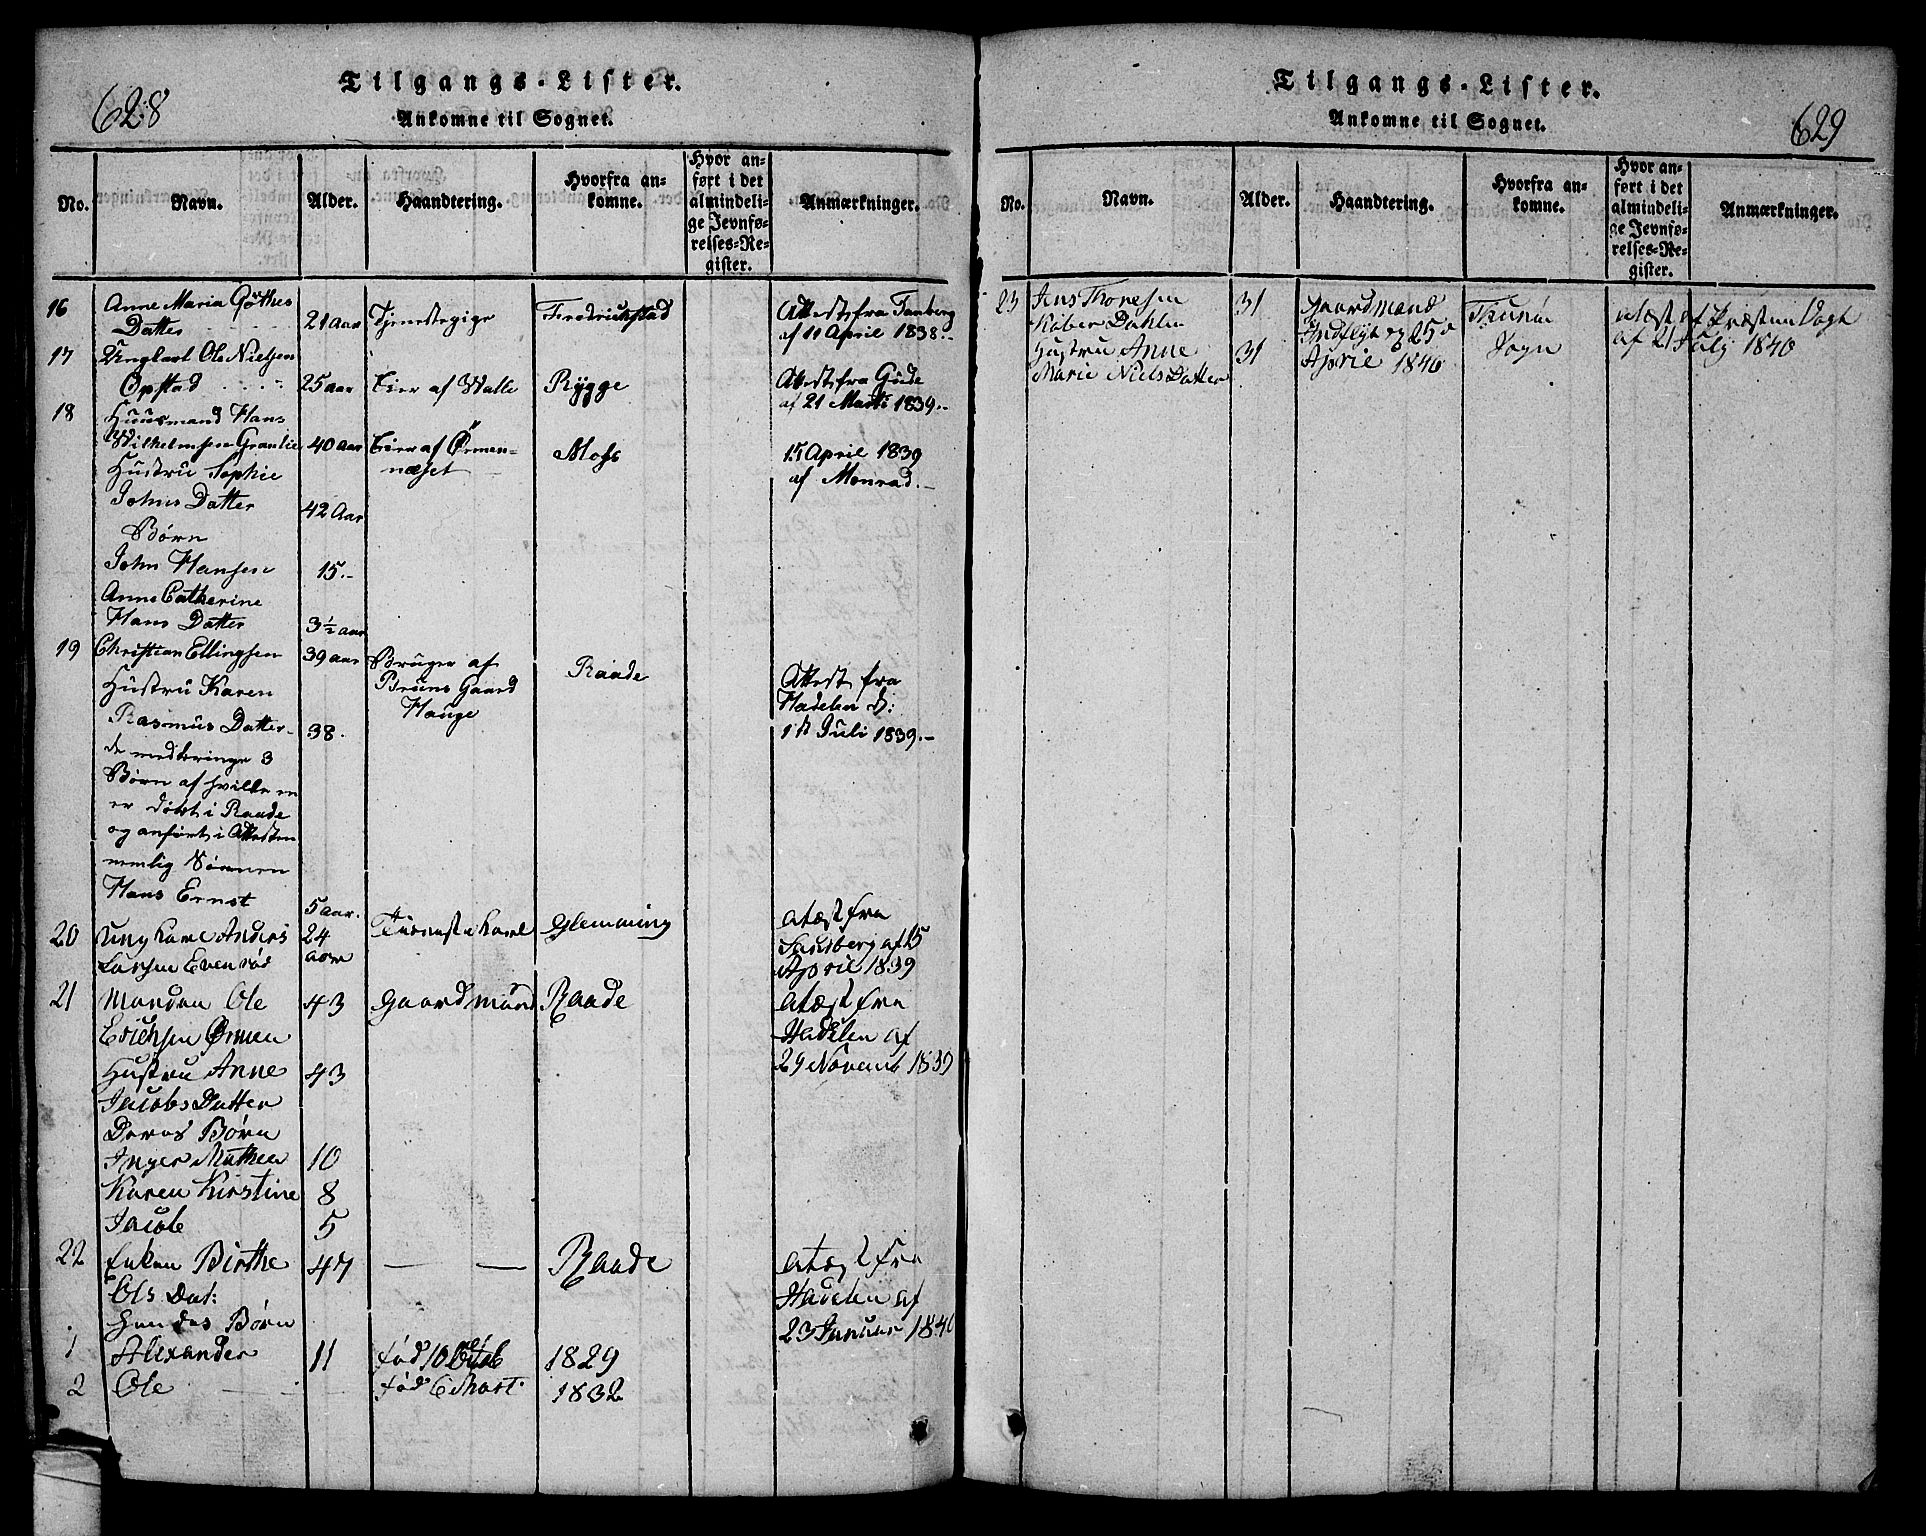 628
Tilgangs-Lister.
Ankomne til Sognet.
No. Navn. Alder. Haandtering. Hvorfra ankomne. Hvor anført i det almindelige Jevnførelses-Register. Anmærkninger.
16 Anne Maria Göthes
Datter 21 aar Tjenestepige Fredrichstad Attest fra
af 11 April 1838.-
17 Ungkarl Ole Nielsen
Opstad 25 aar Eier af Walle Rygge Attest fra
af 21 Marti 1839.-
18 Huusmand Hans
Wilhelmsen Granlie 40 aar Eier af Ørmen- Moss 15 April 1839
næset af Monrad.-
Hustru Sophie
Johns Datter 42 Aar
Børn
John Hansen 15.-
Anne Catherine
Hans Datter 3½ aar
19 Christian Ellingsen 39 aar Bruger af Raade Attest fra
Hustru Karen Bruns Gaard Hadelen d:
Rasmus Datter 38. Hauge Juli 1839.-
de medbringe 3
Børn af hvilke en
er døbt i Raade
og anført i Attesten
nemlig Sønnen
Hans Ernst 5 aar.
20 ung karl Anders 24 Tieneste karl Glemming atæst fra
Larsen Evenrød aar af 15
Aprie 1839
21 Manden Ole 43 Gaardman Raade atæst fra
Erichsen Ørmen Hadelen af
Hustru Anne 43 29 Novemb 1839
Jacobs Datter
Deres Børn
Inger Mathea 10
Karen Kirstine 8
Jacob 5
22 Enken Birthe 47 — — Raade atæst fra
Ols Dat: Hadelen af
Hendes Børn 23 Januar 1840
1 Alexander 11 fød 10 Octob 1829
2 Ole fød 6 Mart 1832
629
Tilgangs-Lister.
Ankomne til Sognet.
No. Navn. Alder. Haandtering. Hvorfra ankomne. Hvor anført i det almindelige Jevnførelses-Register. Anmærkninger.
23 Jens Thoresen 31 Gaardmand Thunø atæst af Præsten Vogt
Dahlen Indflyt 25 Sogn af 21 July 1840
Hustru Anne 31 Aprie 1840
Marie Niels Datter